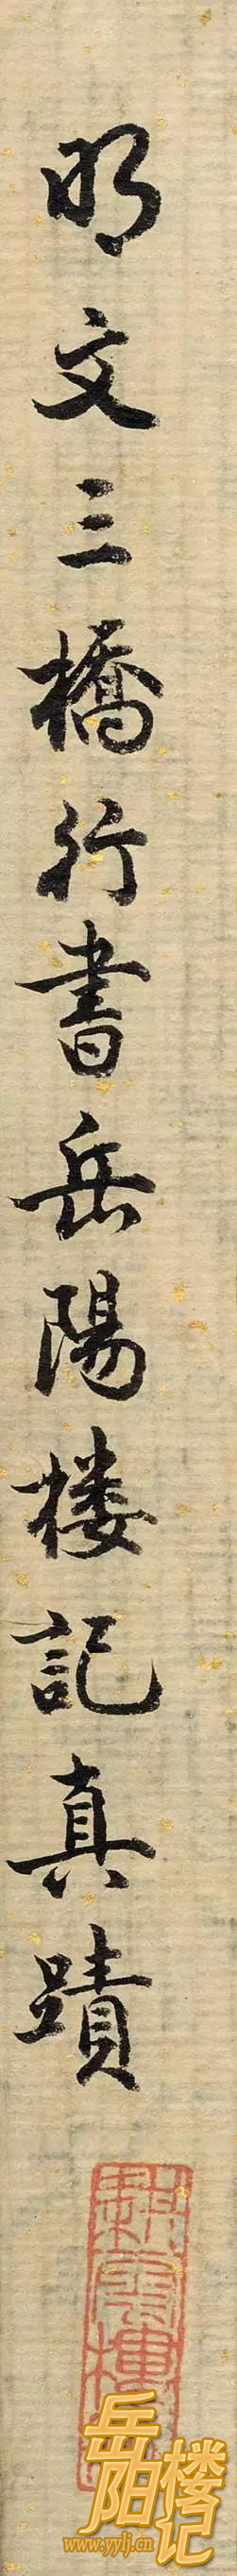 明文三橋行書岳陽楼記真蹟
岳阳楼记
www.yylj.cn